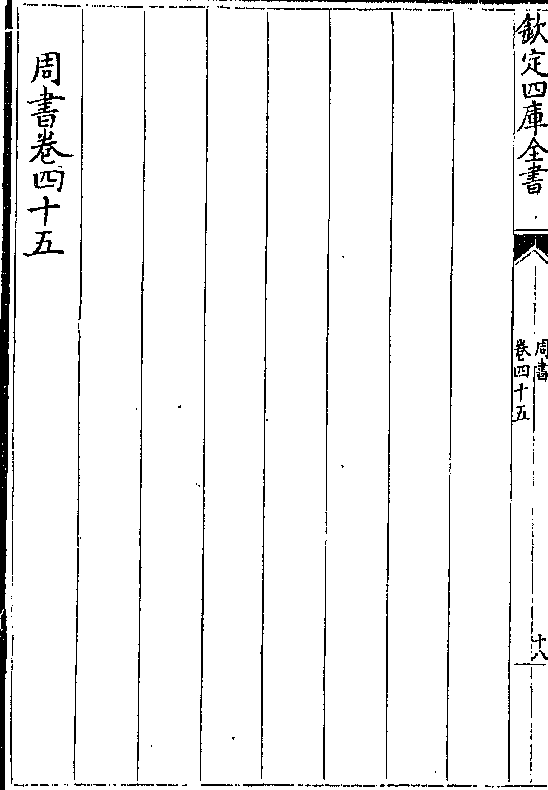 欽定四庫全書
周書
卷四十五
十八
周書卷四十五